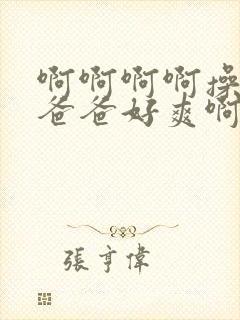 啊啊啊啊操
爸爸好爽啊
張亨偉